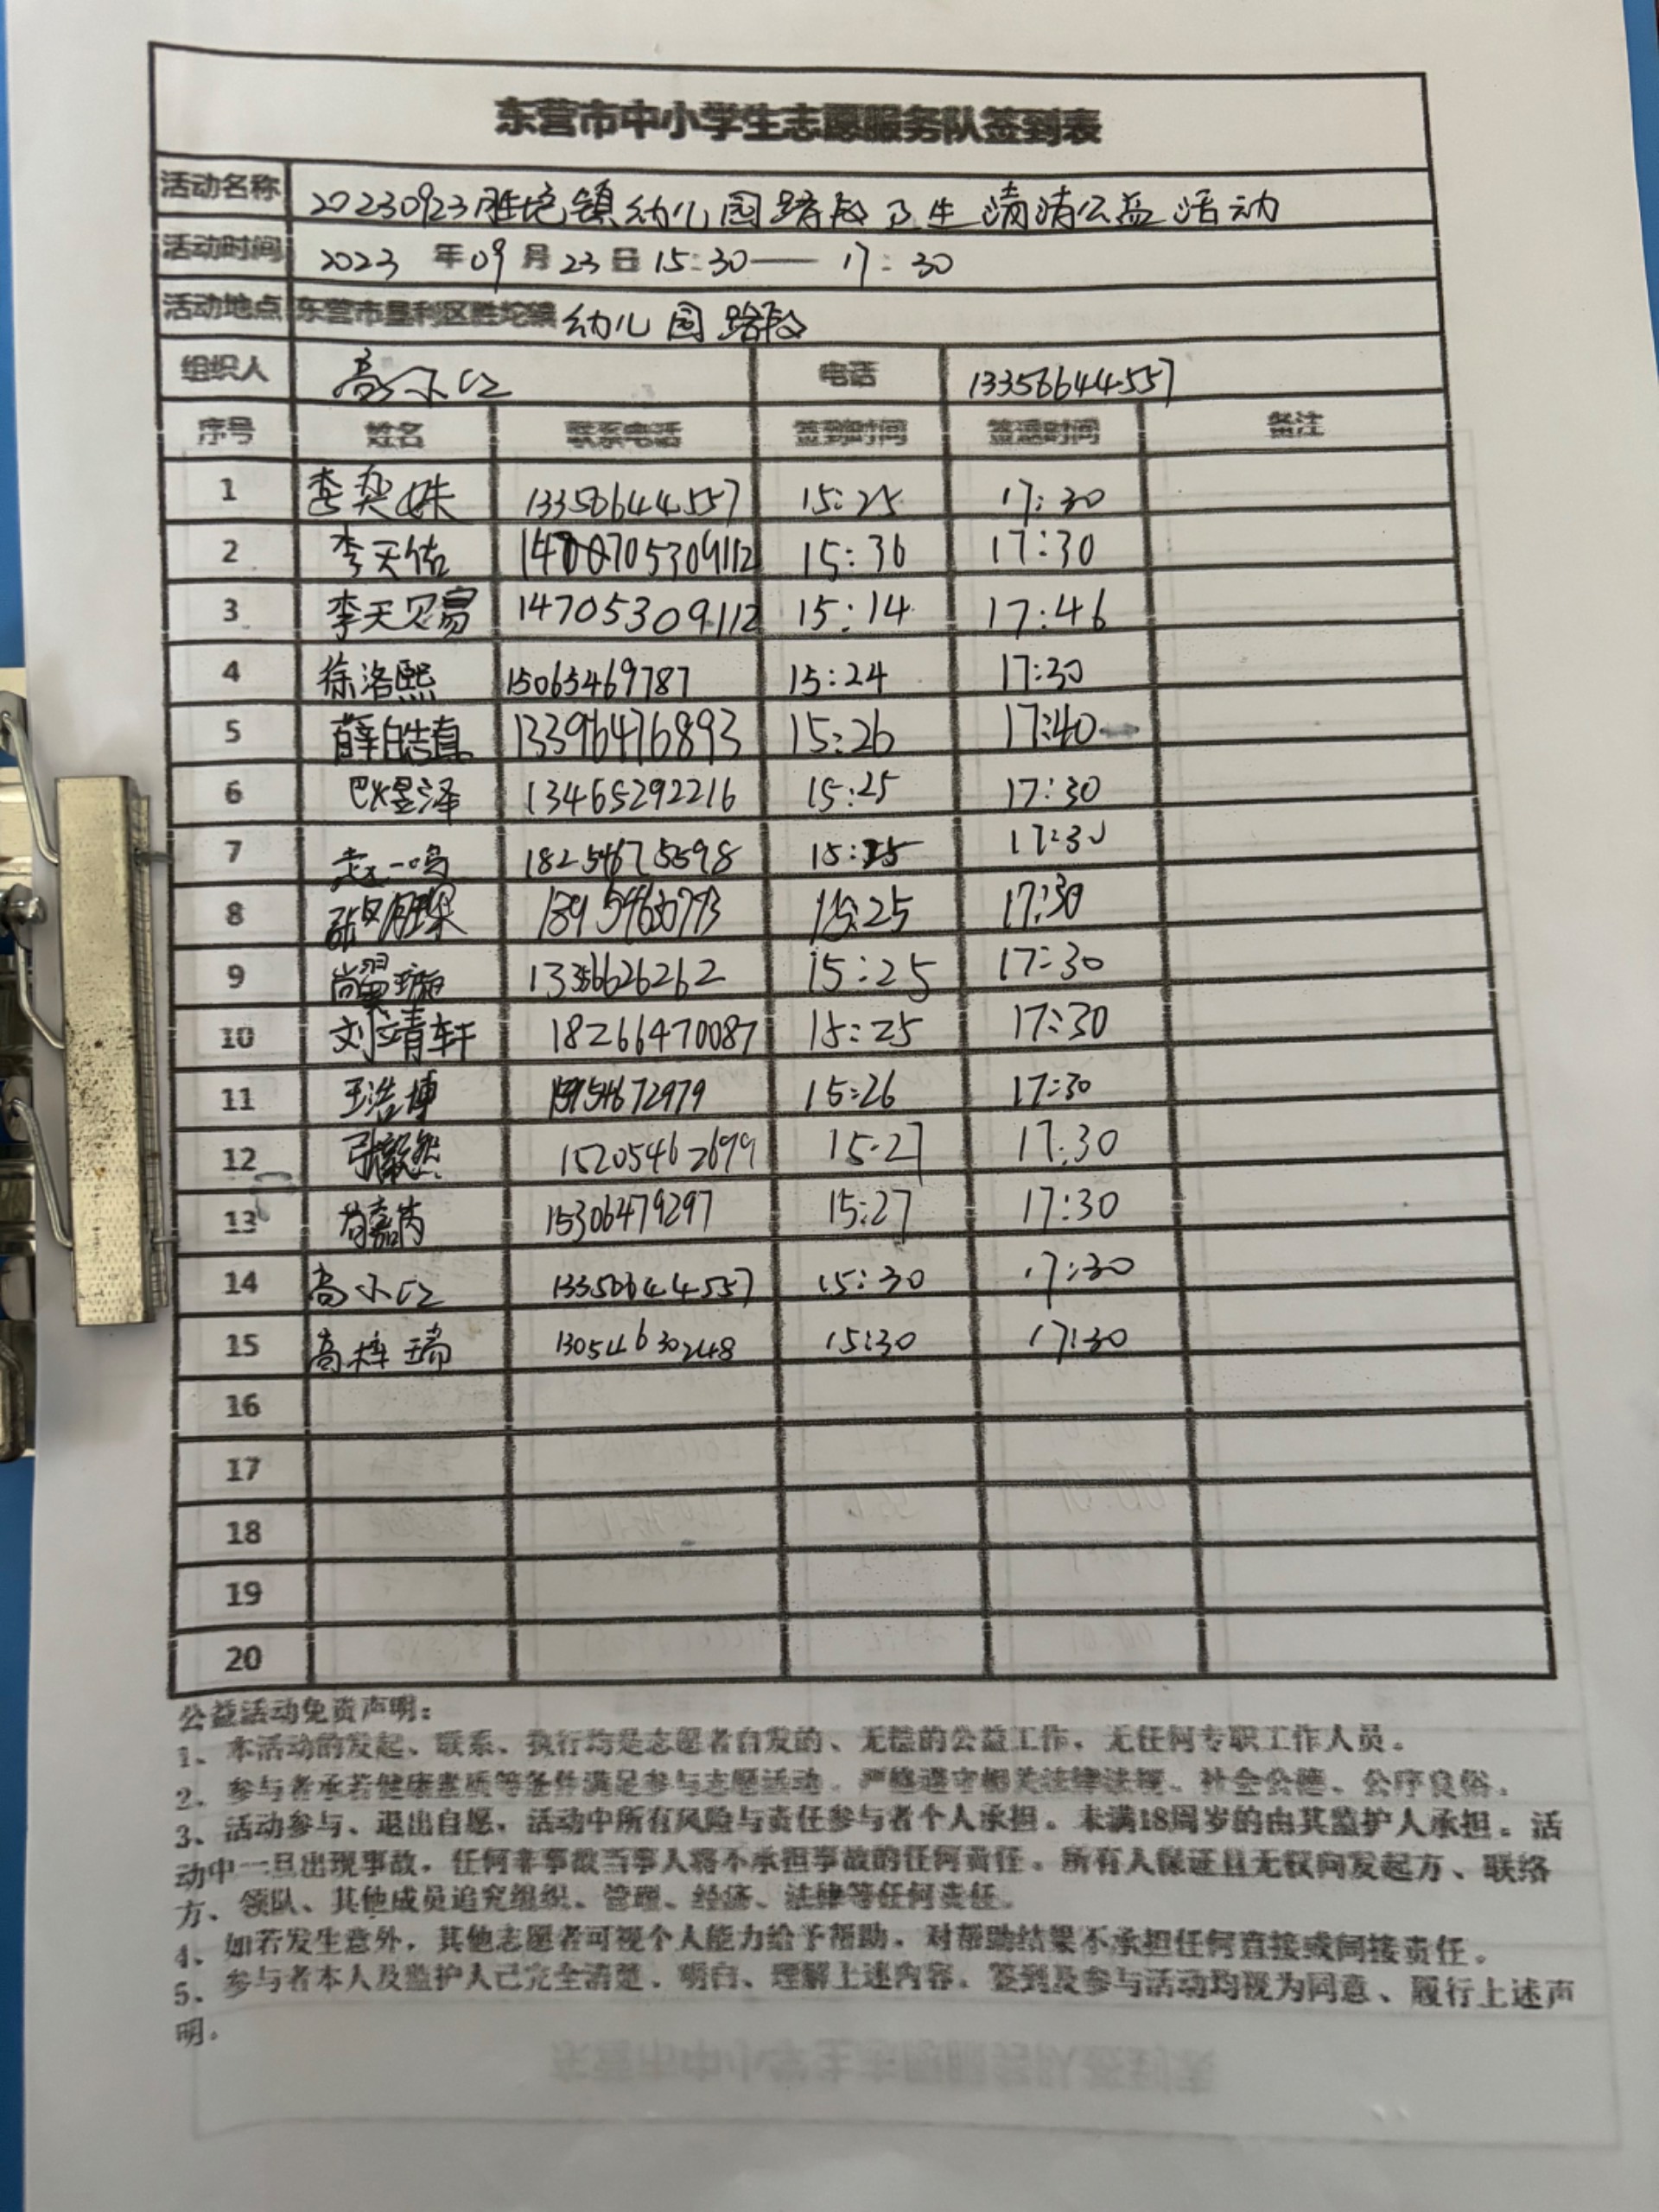 东营市中小学生志愿服务队签到表
活动名称 20230923胜坨镇幼儿园路段卫生清洁公益活动
活动时间 2023年09月23日15:30——17:30
活动地点 东营市垦利区胜坨镇幼儿园路段
组织人 高小红 电话 13356644557
序号 姓名 联系电话 签到时间 签退时间 备注
1 李奕姝 13356644557 15:25 17:30
2 李天佑 15:36 17:30
3 李天赐 14705309112 15:14 17:46
4 徐洛熙 15065469787 15:24 17:30
5 薛皓真 13396476893 15:26 17:40
6 巴煜泽 13465292216 15:25 17:30
7 赵一鸣 18254675598 15:25 17:30
8 15:25 17:30
9 尚翼璇 15:25 17:30
10 刘靖轩 18266470087 15:25 17:30
11 王浩博 15954672979 15:26 17:30
12 张毅然 15205462699 15:27 17:30
13 苟嘉芮 15306479297 15:27 17:30
14 高小红 13356644557 15:30 17:30
15 高梓瑞 13054630248 15:30 17:30
16
17
18
19
20
公益活动免责声明：
1、本活动的发起、联系、执行均是志愿者自发的、无偿的公益工作，无任何专职工作人员。
2、参与者承若健康素质等条件满足参与志愿活动，严格遵守相关法律法规、社会公德、公序良俗。
3、活动参与、退出自愿，活动中所有风险与责任参与者个人承担。未满18周岁的由其监护人承担。活
动中一旦出现事故，任何非事故当事人将不承担事故的任何责任。所有人保证且无权向发起方、联络
方、领队、其他成员追究组织、管理、经济、法律等任何责任。
4、如若发生意外，其他志愿者可视个人能力给予帮助，对帮助结果不承担任何直接或间接责任。
5、参与者本人及监护人已完全清楚、明白、理解上述内容。签到及参与活动均视为同意、履行上述声
明。